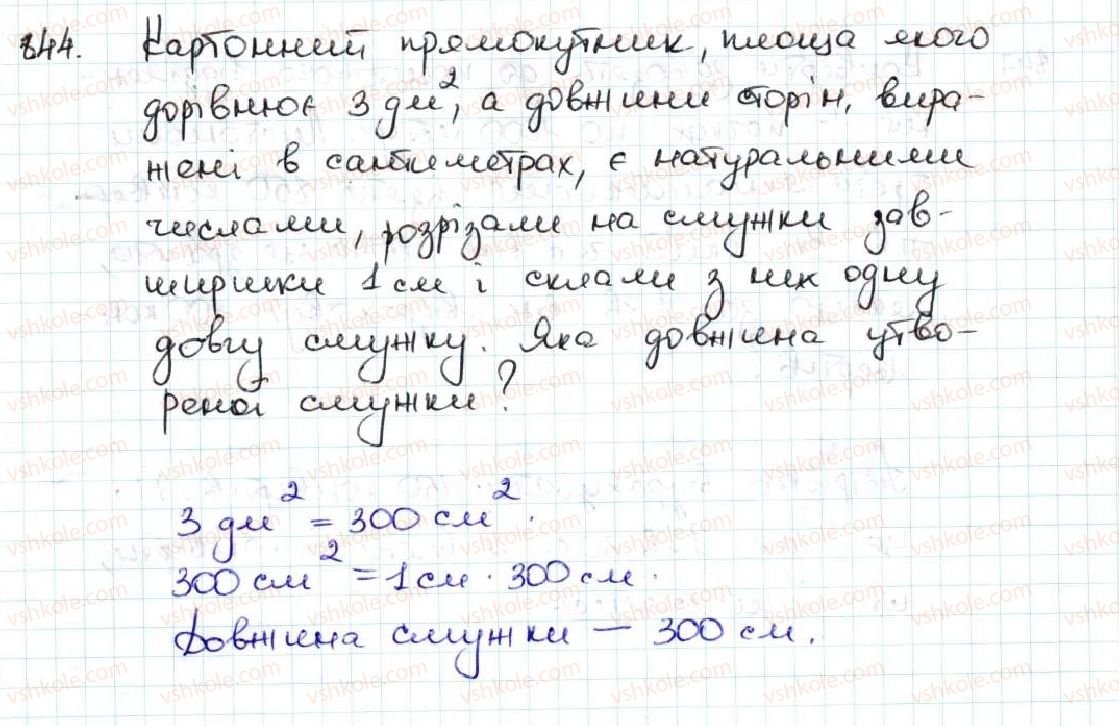 844. Картонний прямокутник, площа якого
дорівнює 3 дм², а довжини сторін, вира-
жені в сантиметрах, є натуральними
числами, розрізали на смужки зав-
ширшки 1 см і склали з них одну
довгу смужку. Яка довжина утво-
реної смужки?
3 дм² = 300 см².
300 см² = 1 см · 300 см.
Довжина смужки — 300 см.